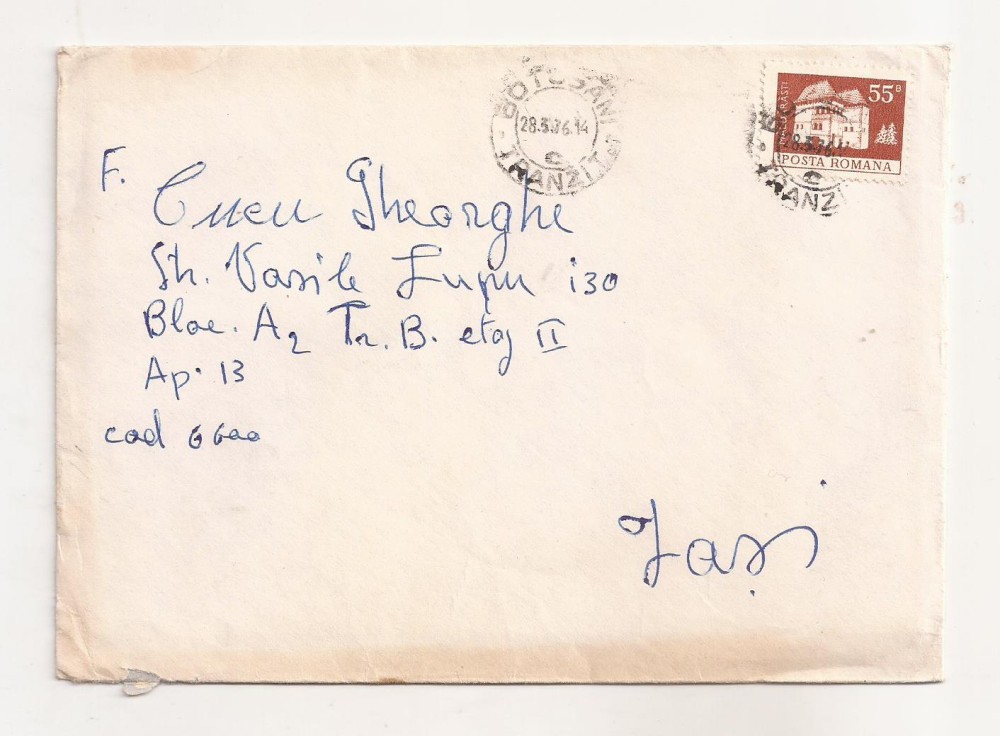 BOTOSANI
28.3.76.14
TRANZIT
55B
POSTA ROMANA
28.3.76.
TRANZI
F.
Cucu Gheorghe
Str. Vasile Lupu 130
Bloc. A2 Tr. B. etaj II
Ap. 13
cod 6600
Iași